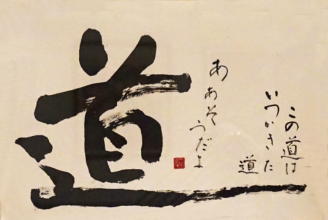 この道は
いつかきた
道
ああそ
うだよ
道